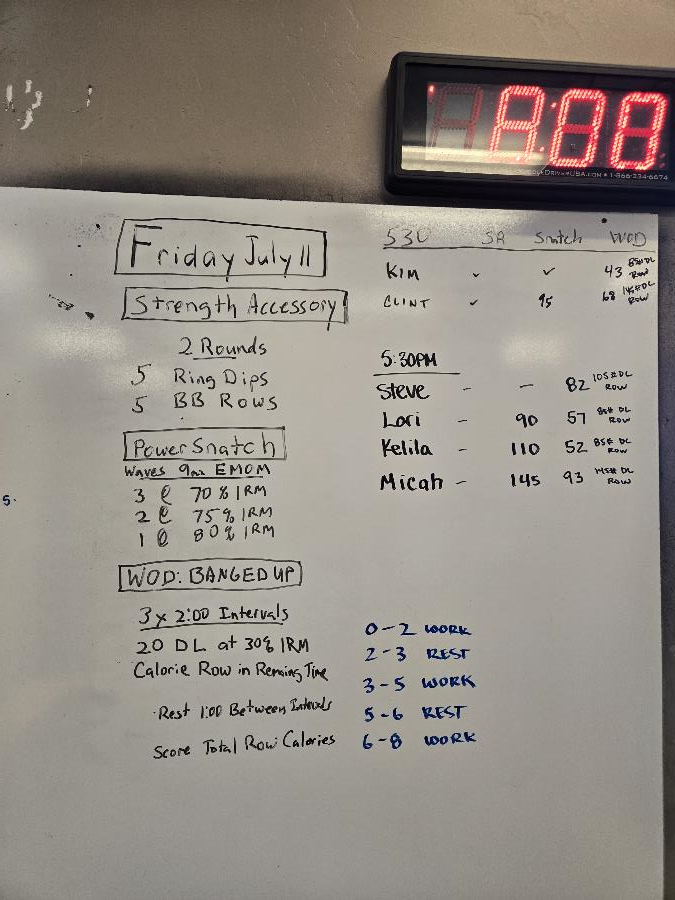 8:00
DriveUSA.com • 1-866-334-6674
Friday July 11
Strength Accessory
2 Rounds
5 Ring Dips
5 BB Rows
Power Snatch
Waves 9min EMOM
3 @ 70% 1RM
2 @ 75% 1RM
1 @ 80% 1RM
WOD: BANGED UP
3 x 2:00 Intervals
20 DL at 30% 1RM
Calorie Row in Remaing Time
·Rest 1:00 Between Intervals
Score Total Row Calories
530 SA Snatch WOD
KIM ✓ ✓ 43 85# DL Row
CLINT ✓ 95 68 145# DL ROW
5:30PM
Steve - - 82 105# DL ROW
Lori - 90 57 85# DL ROW
Kelila - 110 52 85# DL ROW
Micah - 145 93 145# DL ROW
0-2 WORK
2-3 REST
3-5 WORK
5-6 REST
6-8 WORK
5.